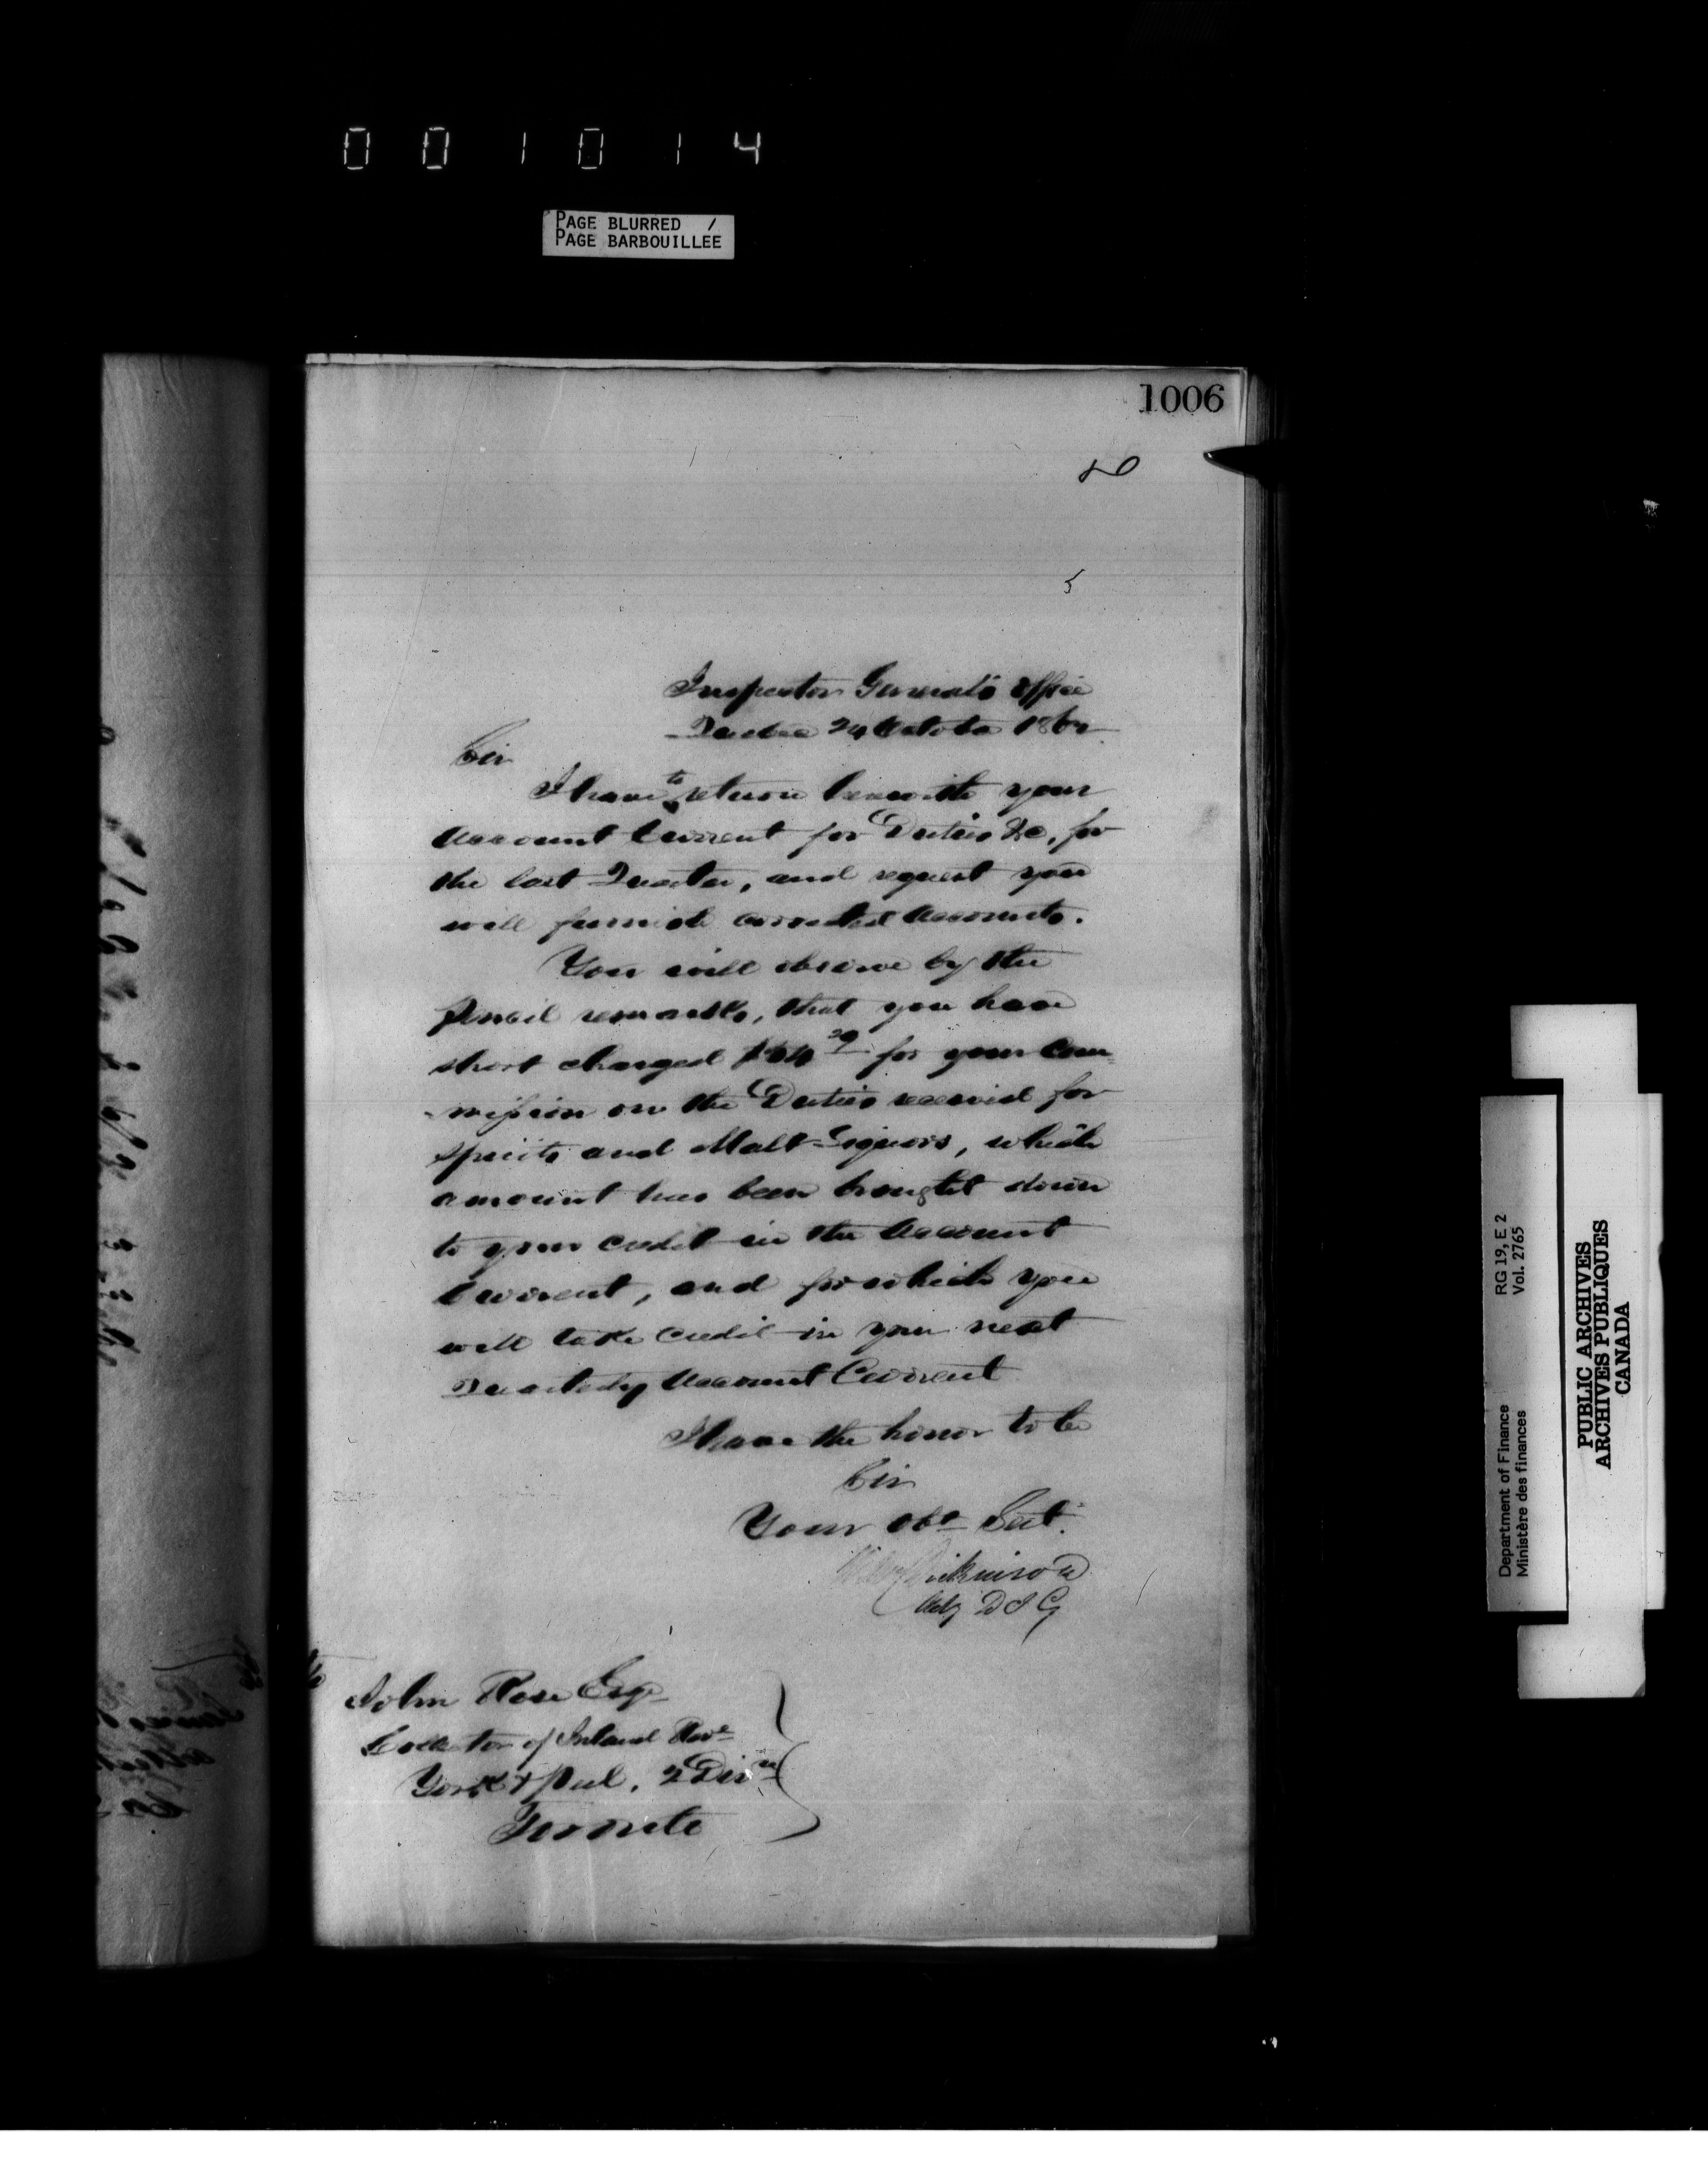 001014
PAGE BLURRED /
PAGE BARBOUILLEE
1006
Inspector General's Office
Quebec 24 October 186
Sir
I have to return herewith your
Account Current for Duties &c, for
the last Quarter, and request you
will furnish corrected Accounts.
You will observe by the
pencil remarks, that you have
short charged for your Com
-mission on the Duties received for
Spirits and Malt-Liquors, which
amount has been brought down
to your credit in the Account
Current, and for which you
will take credit in your next
Quarterly Account Current
I have the honor to be
Sir
Your Obt Sert.
Dickinson
Actg D I G
John Rose Esqr
Collector of Inland Reve
York & Peel, 2 Divn
Toronto
Department of Finance RG 19, E 2
Ministère des finances Vol. 2765
PUBLIC ARCHIVES
ARCHIVES PUBLIQUES
CANADA